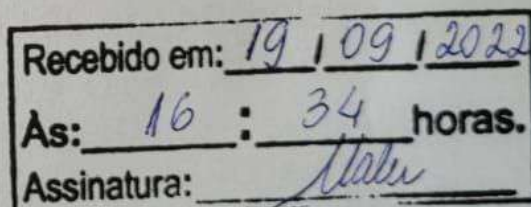 Recebido em: 19 / 09 / 2022
Às: 16 : 34 horas.
Assinatura: